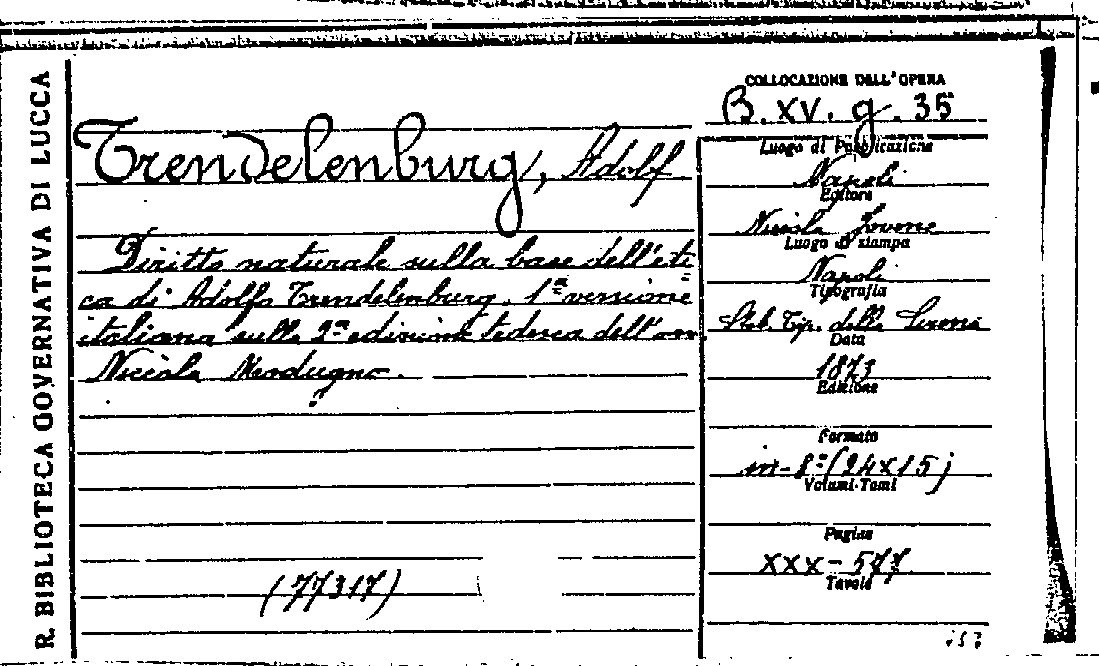 R. BIBLIOTECA GOVERNATIVA DI LUCCA
COLLOCAZIONE DELL'OPERA
B. XV. g. 35
Trendelenburg, Adolf
Diritto naturale sulla base dell'eti
ca di Adolfo Trendelenburg. 1ª versione
italiana sulla 2ª edizione tedesca dell'avv.
Nicola Modugno.
(77317)
Luogo di Pubblicazione
Napoli
Editore
Nicola Jovene
Luogo di stampa
Napoli
Tipografia
Stab. Tip. delle
Data
1873
Edizione
Formato
in-8º (24x15)
Volumi-Tomi
Pagine
XXX-577
Tavole